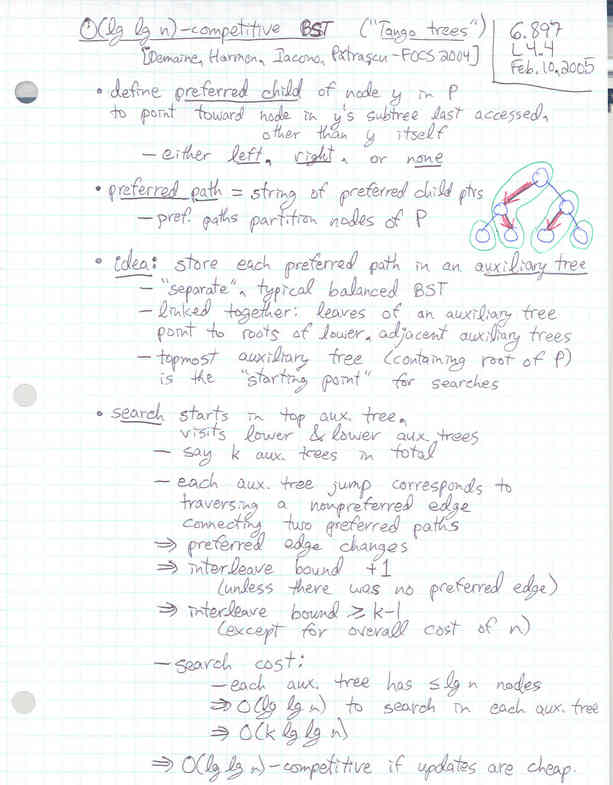 O(lg lg n)-competitive BST ("Tango trees")
6.897
L4.4
Feb. 10, 2005
[Demaine, Harmon, Iacono, Pǎtraşcu - FOCS 2004]
• define preferred child of node y in P
to point toward node in y's subtree last accessed,
other than y itself
- either left, right, or none
• preferred path = string of preferred child ptrs
- pref. paths partition nodes of P
• idea: store each preferred path in an auxiliary tree
- "separate", typical balanced BST
- linked together: leaves of an auxiliary tree
point to roots of lower, adjacent auxiliary trees
- topmost auxiliary tree (containing root of P)
is the "starting point" for searches
• search starts in top aux. tree,
visits lower & lower aux. trees
- say k aux. trees in total
- each aux. tree jump corresponds to
traversing a nonpreferred edge
connecting two preferred paths
⇒ preferred edge changes
⇒ interleave bound +1
(unless there was no preferred edge)
⇒ interleave bound ≥ k-1
(except for overall cost of n)
- search cost:
- each aux. tree has ≤ lg n nodes
⇒ O(lg lg n) to search in each aux. tree
⇒ O(k lg lg n)
⇒ O(lg lg n)-competitive if updates are cheap.